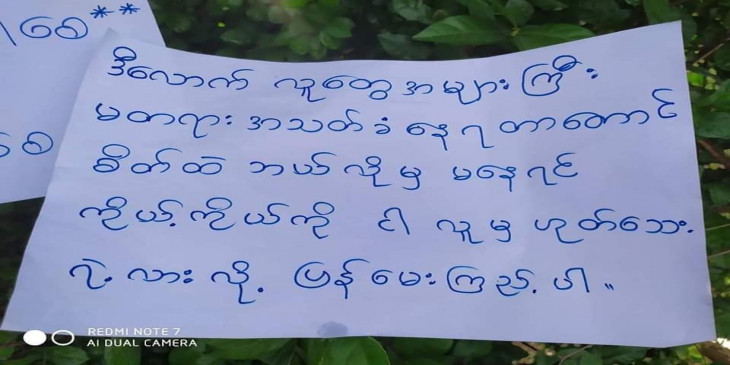 ၊ ၆၁**
၆၁
ဒီလောက် လူတွေအများကြီး
မတရား အသတ်ခံနေရတာတောင်
စိတ်ထဲ ဘယ်လိုမှ မနေရင်
ကိုယ့်ကိုယ်ကို ငါ လူမှ ဟုတ်သေး
ရဲ့လားလို့ ပြန်မေးကြည့်ပါ။
REDMI NOTE 7
AI DUAL CAMERA